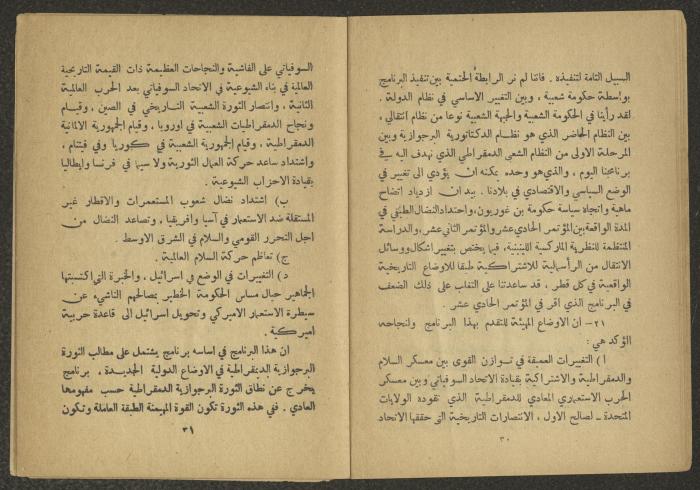 السبيل التامة لتنفيذه . فاننا لم نر الرابطة الحتمية بين تنفيذ البرنامج
بواسطة حكومة شعبية ، وبين التغيير الاساسي في نظام الدولة .
لقد رأينا في الحكومة الشعبية والجبهة الشعبية نوعا من نظام انتقالي ،
بين النظام الحاضر الذي هو نظام الدكتاتورية البرجوازية وبين
المرحلة الاولى من النظام الشعبي الدمقراطي الذي نهدف اليه في
برنامجنا اليوم ، والذي هو وحده يمكنه ان يؤدي الى تغيير في
الوضع السياسي والاقتصادي في بلادنا . بيد ان ازدياد اتضاح
ماهية واتجاه سياسة حكومة بن غوريون، واحتداد النضال الطبقي في
المدة الواقعة بين المؤتمر الحادي عشر والمؤتمر الثاني عشر، والدراسة
المنتظمة للنظرية الماركسية اللينينية، فيما يختص بتغيير اشكال ووسائل
الانتقال من الرأسمالية للاشتراكية طبقا للاوضاع التاريخية
الواقعية في كل قطر ، قد ساعدتنا على التغلب على ذلك الضعف
في البرنامج الذي اقر في المؤتمر الحادي عشر .
٢١ – ان الاوضاع المهيئة للتقدم بهذا البرنامج ولنجاحه
المؤكد هي :
أ ) التغييرات العميقة في توازن القوى بين معسكر السلام
والدمقراطية والاشتراكية بقيادة الاتحاد السوفياتي وبين معسكر
الحرب الاستعماري المعادي للدمقراطية الذي تقوده الولايات
المتحدة – لصالح الاول ، الانتصارات التاريخية التي حققها الاتحاد
٣٠
السوفياتي على الفاشية والنجاحات العظيمة ذات القيمة التاريخية
العالمية في بناء الشيوعية في الاتحاد السوفياتي بعد الحرب العالمية
الثانية ، وانتصار الثورة الشعبية التاريخي في الصين ، وقيام
ونجاح الدمقراطيات الشعبية في اوروبا ، وقيام الجمهورية الالمانية
الدمقراطية ، وقيام الجمهورية الشعبية في كوريا وفي فتنام ،
واشتداد ساعد حركة العمال الثورية ولا سيما في فرنسا وايطاليا
بقيادة الاحزاب الشيوعية .
ب ) اشتداد نضال شعوب المستعمرات والاقطار غير
المستقلة ضد الاستعمار في آسيا وافريقيا ، وتصاعد النضال من
اجل التحرر القومي والسلام في الشرق الاوسط .
ج ) تعاظم حركة السلام العالمية .
د ) التغييرات في الوضع في اسرائيل ، والخبرة التي اكتسبتها
الجماهير حيال مساس الحكومة الخطير بمصالحهم الناشيء عن
سيطرة الاستعمار الاميركي وتحويل اسرائيل الى قاعدة حربية
اميركية .
ان هذا البرنامج في اساسه برنامج يشتمل على مطالب الثورة
البرجوازية الدمقراطية في الاوضاع الدولية الجديدة ، برنامج
يخرج عن نطاق الثورة البرجوازية الدمقراطية حسب مفهومها
العادي . ففي هذه الثورة تكون القوة المهيمنة الطبقة العاملة وتكون
٣١